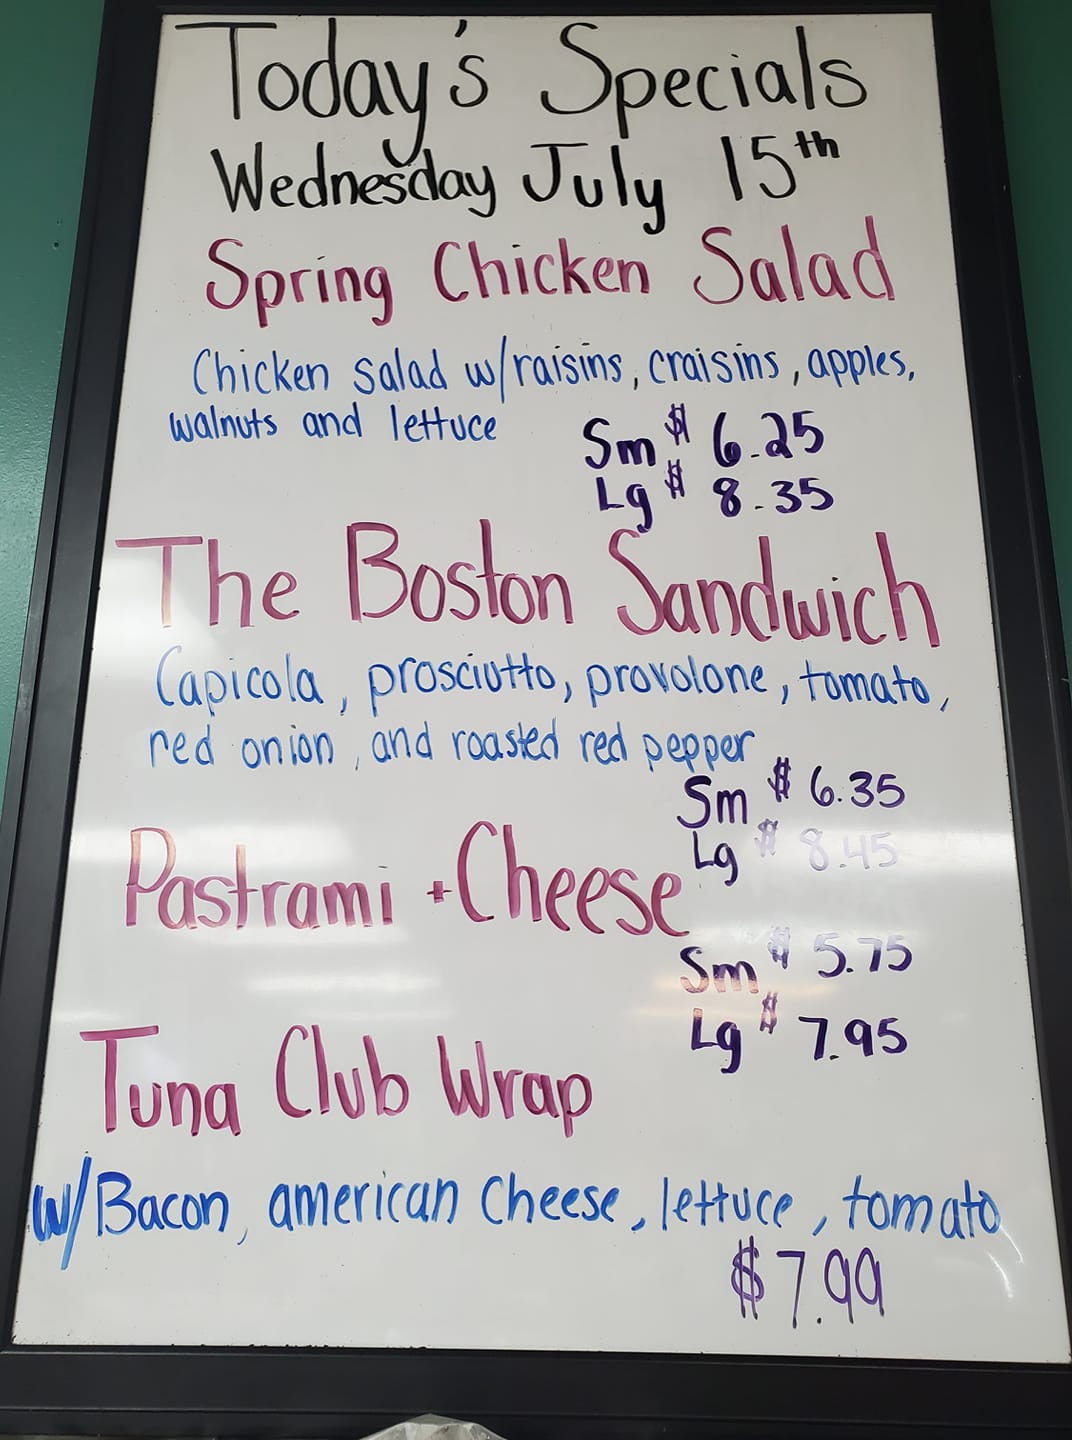 Today's Specials
Wednesday July 15th
Spring Chicken Salad
Chicken salad w/raisins, craisins, apples,
walnuts and lettuce
Sm $ 6.25
Lg $ 8.35
The Boston Sandwich
Capicola, prosciutto, provolone, tomato,
red onion, and roasted red pepper
Sm $ 6.35
Lg $ 8.45
Pastrami + Cheese
Sm $ 5.75
Lg $ 7.95
Tuna Club Wrap
w/Bacon, american cheese, lettuce, tomato
$7.99